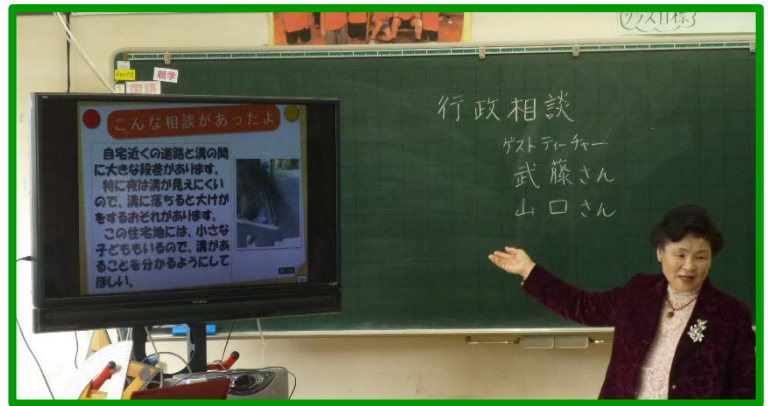 クラス目標
朝学
国語
こんな相談があったよ
自宅近くの道路と溝の間
に大きな段差があります。
特に夜は溝が見えにくい
ので、溝に落ちると大けが
をするおそれがあります。
この住宅地には、小さな
子どももいるので、溝があ
ることを分かるようにして
ほしい。
行政相談
ゲストティーチャー
武藤さん
山口さん